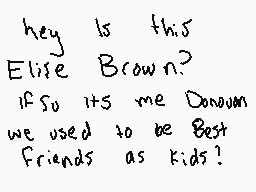 hey Is this
Elise Brown?
If so its me Donovan
we used to be Best
friends as kids!